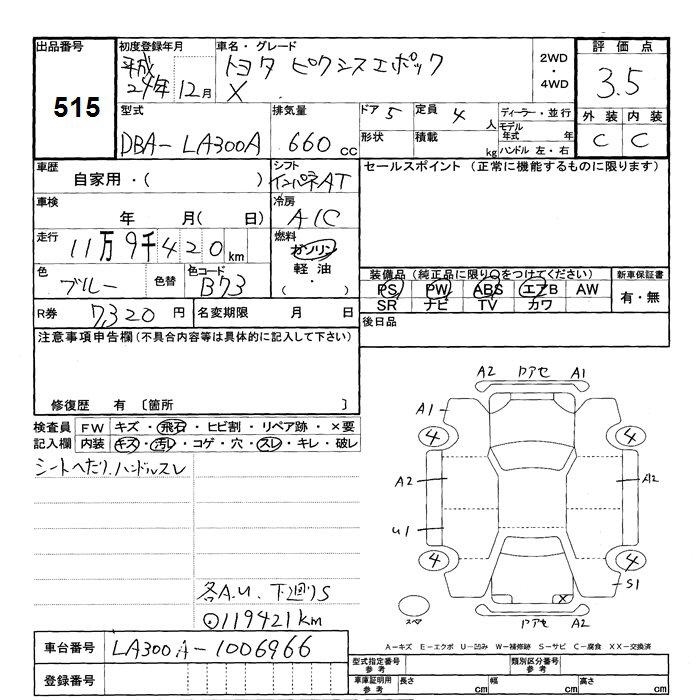 出品番号
515
初度登録年月
平成
24年 12月
車名・グレード
トヨタ ピクシスエポック
X
2WD
・
4WD
評価点
3.5
外装 内装
C C
型式
DBA-LA300A
排気量
660 cc
ドア 5
定員 4 人
形状
積載 kg
ディーラー・並行
モデル年式 年
ハンドル 左・右
車歴
自家用・( )
シフト
インパネAT
セールスポイント (正常に機能するものに限ります)
車検
年 月( 日)
冷房
A/C
走行
11万9千420km
燃料
ガソリン
軽油
( ・ )
色
ブルー
色替
色コード
B73
装備品 (純正品に限り○をつけてください)
PS PW ABS エアB AW
SR ナビ TV カワ
新車保証書
有・無
R券 7,320 円
名変期限 月 日
後日品
注意事項申告欄(不具合内容等は具体的に記入して下さい)
修復歴 有 〔箇所 〕
検査員
記入欄
FW キズ・飛石・ヒビ割・リペア跡・×要
内装 キズ・汚レ・コゲ・穴・スレ・キレ・破レ
シートヘたり、ハンドルスレ
各A.U. 下廻りS
119421km
A2 ワアセ A1
A1
4 4
A2 A2
U1
4 4
X S1
スペ
ワアセ A2
A-キズ E-エクボ U-凹み W-補修跡 S-サビ C-腐食 XX-交換済
車台番号
LA300A-1006966
登録番号
型式指定番号
参考
類別区分番号
参考
車庫証明用
参考
長さ cm
幅 cm
高さ cm